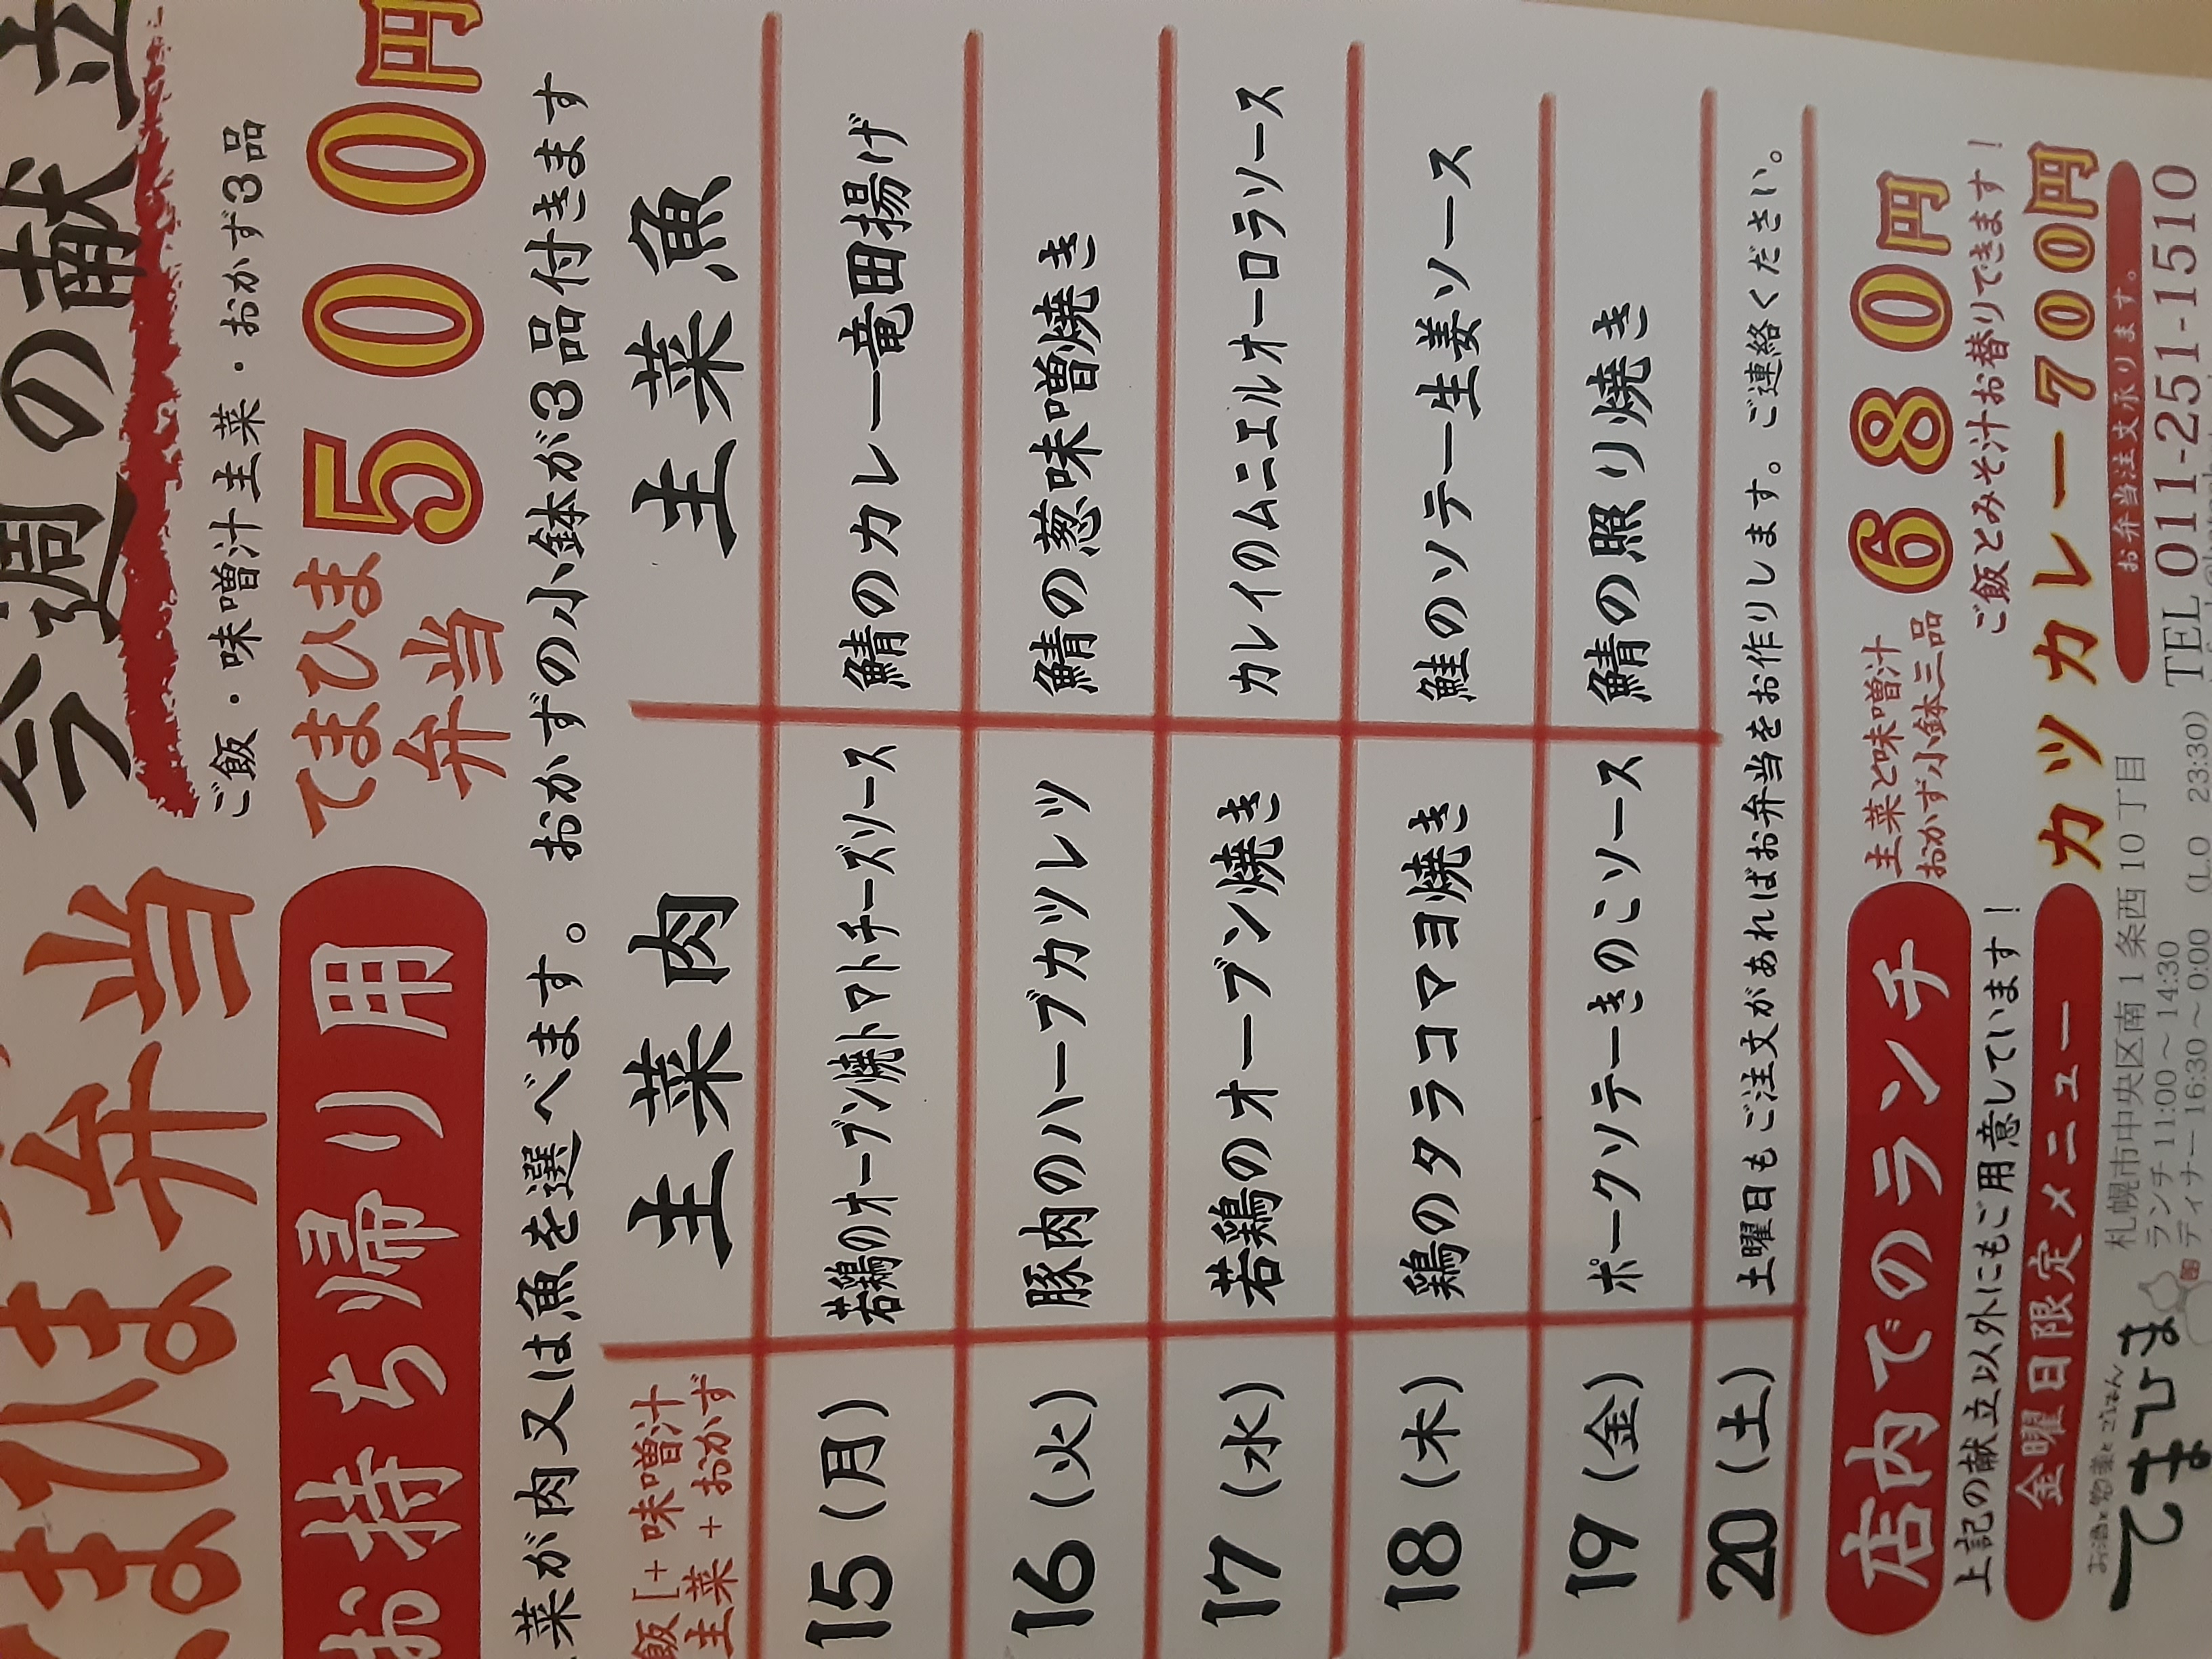 まひま弁当 今週の献立
ご飯・味噌汁主菜・おかず3品
お持ち帰り用 てまひま弁当 500円
菜が肉又は魚を選べます。おかずの小鉢が3品付きます
飯[+味噌汁
主菜+おかず
主菜肉 主菜魚
15(月) 若鶏のオーブン焼トマトチーズソース 鯖のカレー竜田揚げ
16(火) 豚肉のハーブカツレツ 鯖の葱味噌焼き
17(水) 若鶏のオーブン焼き カレイのムニエルオーロラソース
18(木) 鶏のタラコマヨ焼き 鮭のソテー生姜ソース
19(金) ポークソテーきのこソース 鯖の照り焼き
20(土) 土曜日もご注文があればお弁当をお作りします。ご連絡ください。
店内でのランチ 主菜と味噌汁 おかず小鉢三品 680円
上記の献立以外にもご用意しています! ご飯とみそ汁お替りできます!
金曜日限定メニュー カツカレー 700円
お酒と惣菜とごはん
てまひま
札幌市中央区南1条西10丁目
ランチ 11:00~14:30
ディナー 16:30~0:00 (L.O 23:30)
お弁当注文承ります。
TEL 011-251-1510